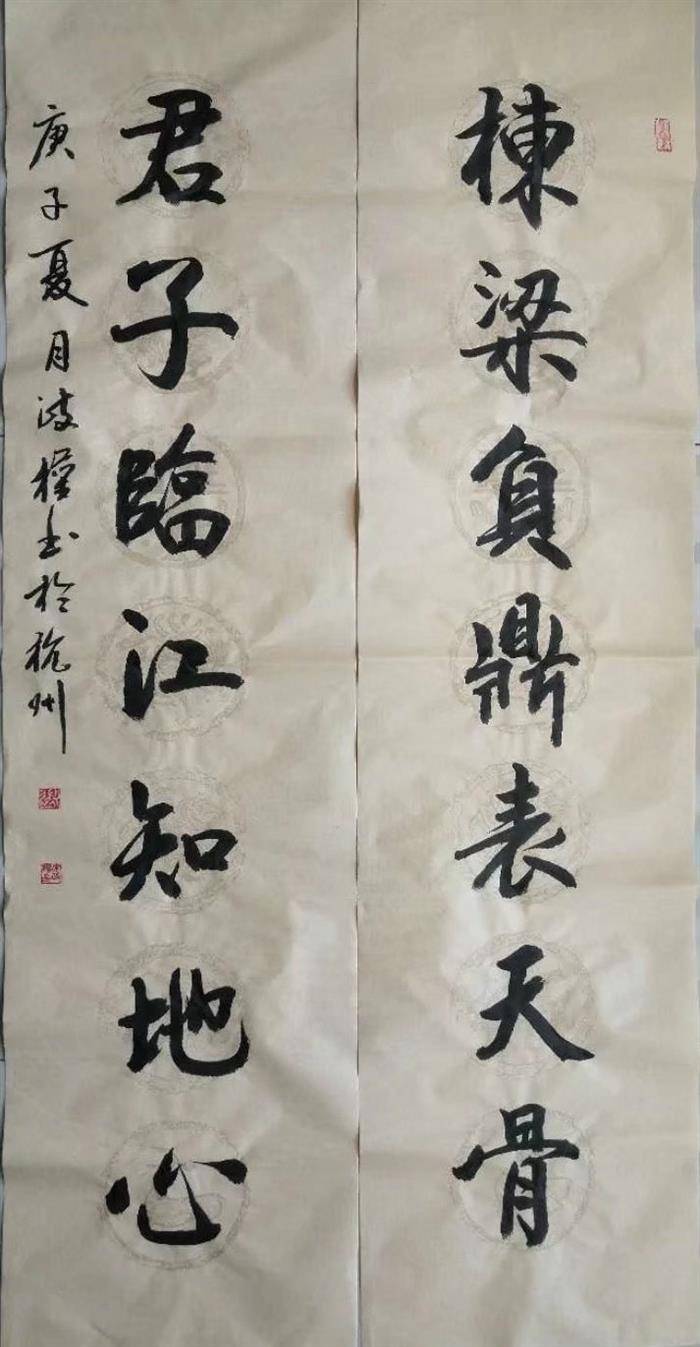 棟梁負鼎表天骨
君子臨江知地心
庚子夏月波権书於杭州